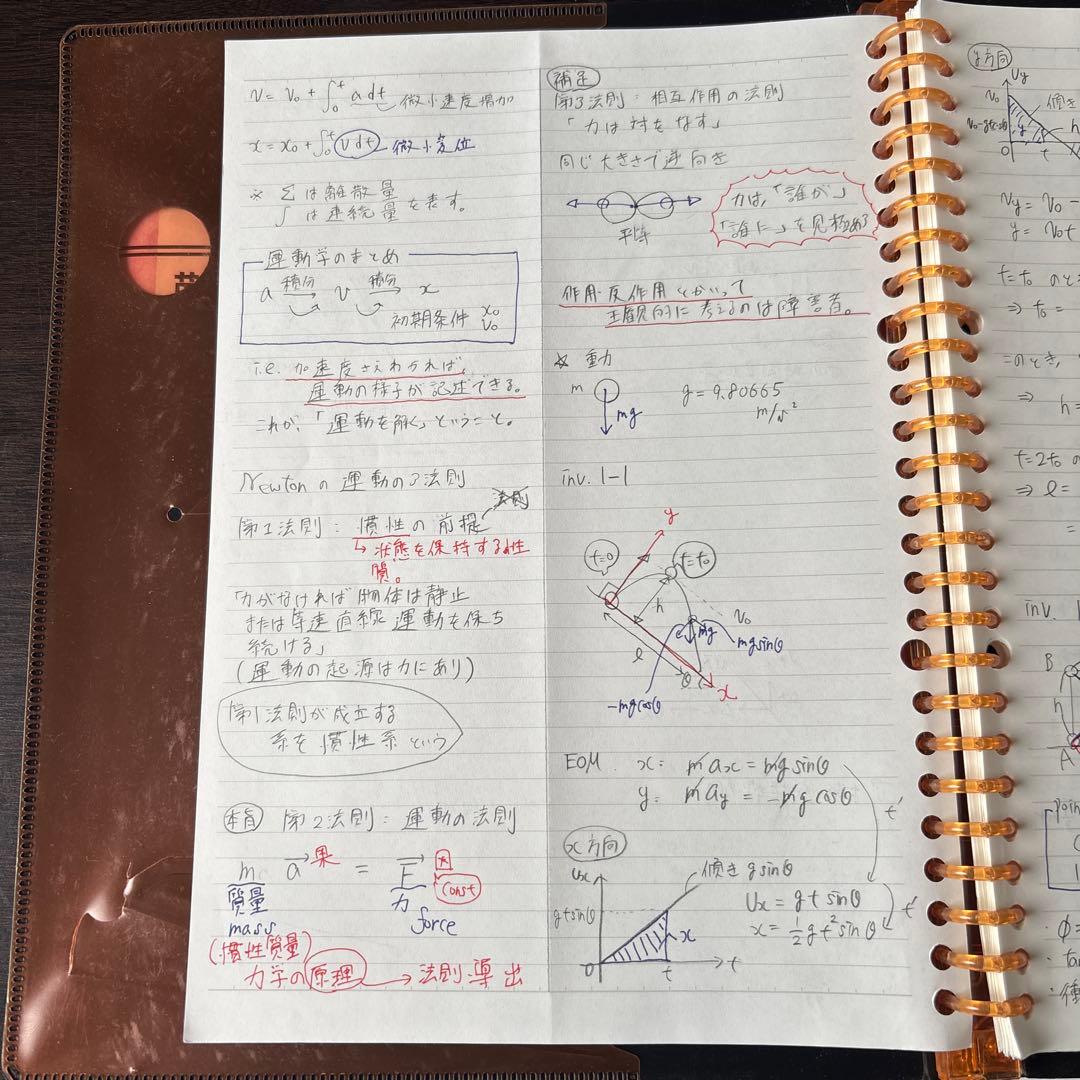 v = v₀ + ∫₀ᵗ a dt 微小速度増加
x = x₀ + ∫₀ᵗ v dt 微小変位
※ Σ は離散量
∫ は連続量 を表す。
運動学のまとめ
a 積分→ v 積分→ x
初期条件 x₀ v₀
i.e. 加速度さえわかれば、
運動の様子が記述できる。
これが、「運動を解く」ということ。
Newtonの運動の3法則
法則
第1法則: 慣性の前提
↳ 状態を保持する性
質。
「力がなければ物体は静止
または等速直線運動を保ち
続ける」
(運動の起源は力にあり)
第1法則が成立する
系を慣性系という
第2法則: 運動の法則
m a→ 果 = F→ 因
const
質量 力
mass force
(慣性質量)
力学の原理 → 法則・導出
補足
第3法則: 相互作用の法則
「力は対をなす」
同じ大きさで逆向き
力は、「誰が」
「誰に」を見極める
平等
作用・反作用とかいって
主観的に考えるのは障害者。
☆ 動力
m mg g = 9.80665
m/s²
inv. 1-1
y
t=0 t=t₀
h
v₀
mg mgsinθ
ℓ θ x
-mgcosθ
EOM. x: m ax = mg sinθ
y: m ay = -mg cosθ
x方向
vx 傾き g sinθ
gt sinθ
x
0 t t
vx = gt sinθ
x = 1/2 gt² sinθ
y方向
vy
v₀ 傾き
0 t
vy = v₀ -
y = v₀t
t = t₀ のと
⇒ t₀ =
=のとき,
⇒ h =
t = 2t₀ の
⇒ ℓ =
=
inv. 1
B
h
A
poin
φ =
tan